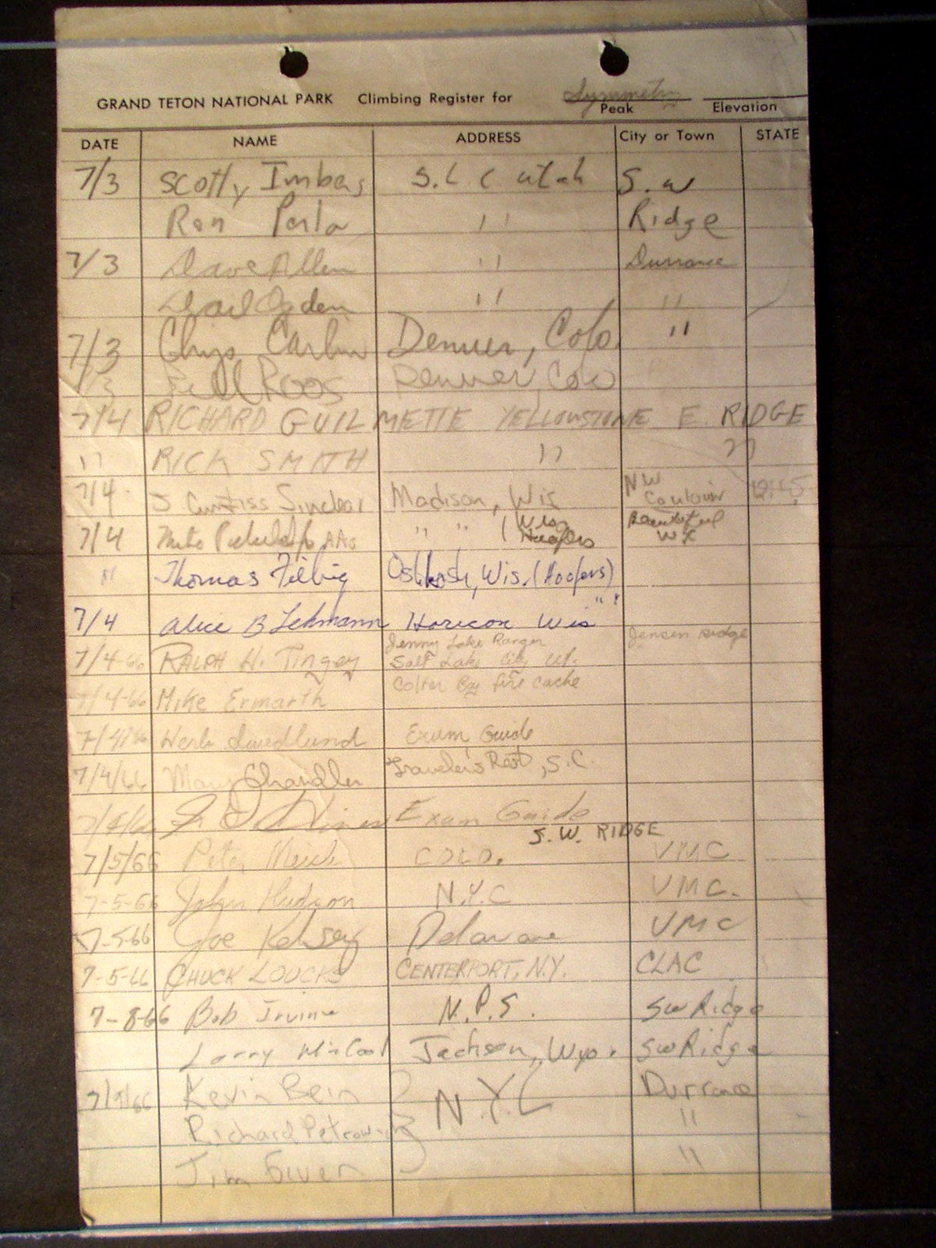 GRAND TETON NATIONAL PARK Climbing Register for Symmetry
Peak Elevation
DATE NAME ADDRESS City or Town STATE
7/3 Scotty Imbers S.L.C Utah S.W
Ron Perla " Ridge
7/3 Dave Allen " Durrance
Ogden " "
7/3 Chips Carlin Denver, Colo. "
7/3 Bill Roos Denver, Colo
7/4 RICHARD GUILMETTE YELLOWSTONE E. RIDGE
" RICK SMITH " "
7/4 J Curtiss Sinclear Madison, Wis NW Couloir 12:15
7/4 " " (Wis Hoofers Beautiful Wx
" Thomas Filbig Oshkosh, Wis. (Hoofers)
7/4 Alice B Lehmann Horicon Wis " "
7/4-66 RALPH H. Tingey Jenny Lake Ranger Jensen Ridge
Salt Lake City Ut.
7/4-66 Mike Ermarth Colter Bay fire cache
7/4/66 Herb Swedlund Exum Guide
7/4/66 Mary Chandler Travelers Rest, S.C.
7/4/66 Exum Guide
S.W. RIDGE
7/5/66 Pete COLO. VMC
7-5-66 John Hudson N.Y.C VMC.
7-5-66 Joe Kelsey Delaware VMC
7-5-66 CHUCK LOUCKS CENTERPORT, N.Y. CLAC
7-8-66 Bob Irvine N.P.S. SW Ridge
Larry Jackson, Wyo. SW Ridge
7/9/66 Kevin Bein N.Y.C Durrance
Richard Petrowski "
Jim Given "